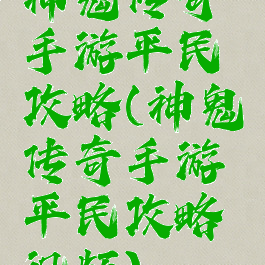 神鬼传奇
手游平民
攻略(神鬼
传奇手游
平民攻略
视频)